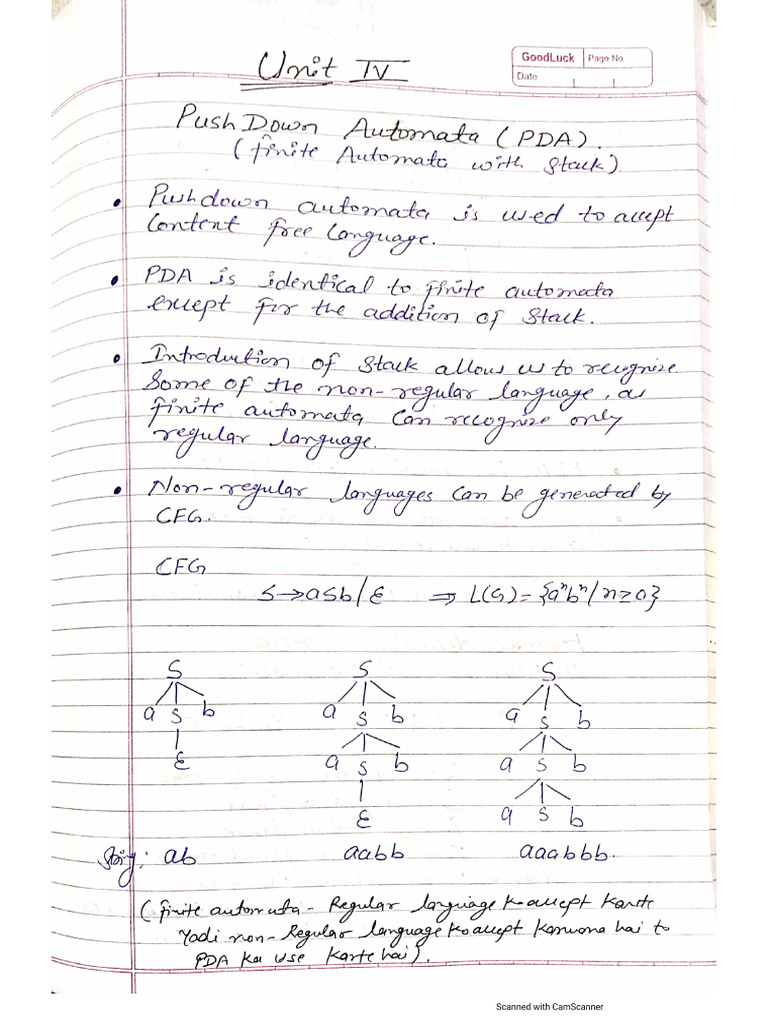 Unit IV
GoodLuck Page No
Date
PushDown Automata (PDA).
(finite Automata with stack)
• Pushdown automata is used to accept
Context free language.
• PDA is identical to finite automata
except for the addition of stack.
• Introduction of stack allows us to recognize
some of the non-regular language, as
finite automata can recognize only
regular language.
• Non-regular languages can be generated by
CFG.
CFG
S→aSb/ε ⇒ L(G)={aⁿbⁿ/n≥0}
S S S
a S b a S b a S b
ε a S b a S b
ε a S b
String: ab aabb aaabbb.
(finite automata - Regular language ko accept karte
Yadi non-Regular language ko accept karwana hai to
PDA ka use karte hai).
Scanned with CamScanner